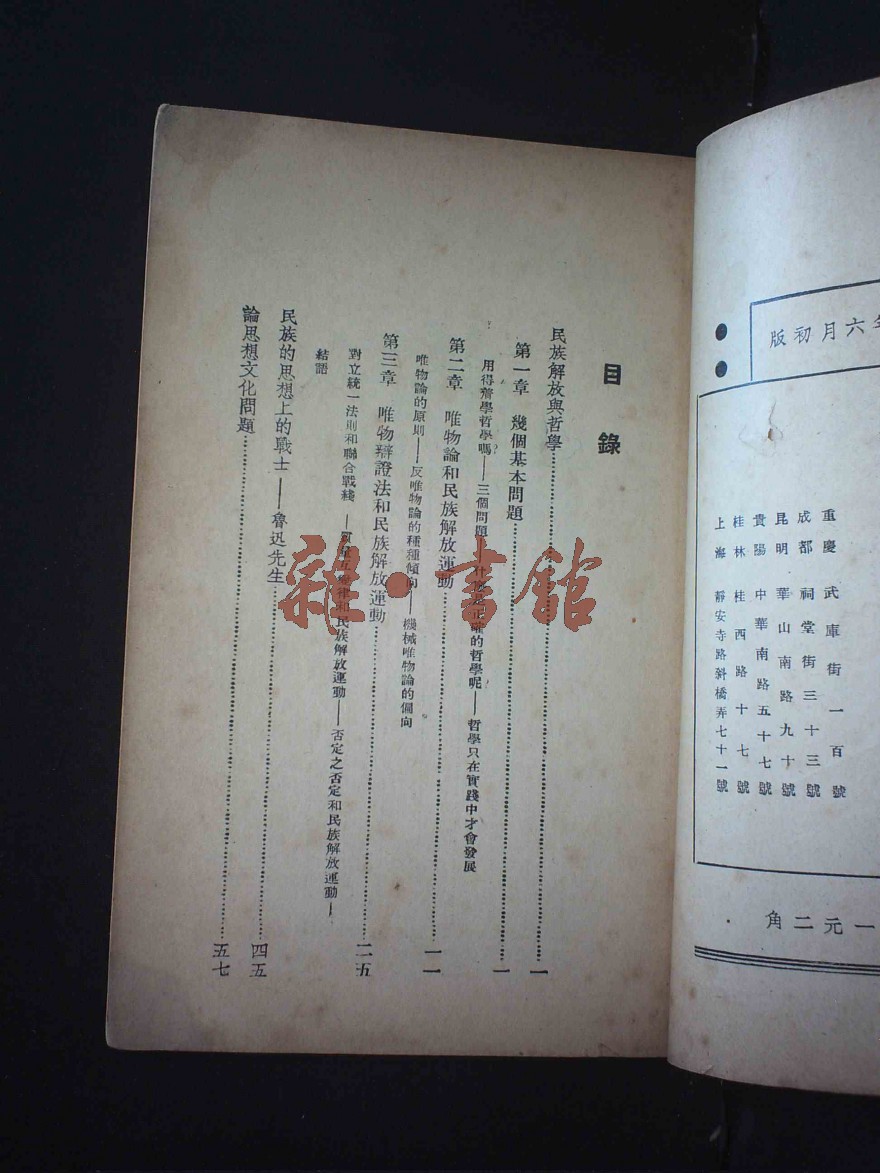 年六月初版
重慶 武庫街一百號
成都 祠堂街三十三號
昆明 華山南路九十號
貴陽 中華南路五十七號
桂林 桂西路十七號
上海 靜安寺路斜橋弄七十一號
一元二角
目錄
民族解放與哲學……一
第一章 幾個基本問題……一
用得着學哲學嗎?——三個問題——什麼是正確的哲學呢?——哲學只在實踐中才會發展
第二章 唯物論和民族解放運動……一一
唯物論的原則——反唯物論的種種傾向——機械唯物論的偏向
第三章 唯物辯證法和民族解放運動……二五
對立統一法則和聯合戰綫——質量互變律和民族解放運動——否定之否定和民族解放運動——
結語
民族的思想上的戰士——魯迅先生……四五
論思想文化問題……五七
雜·書館